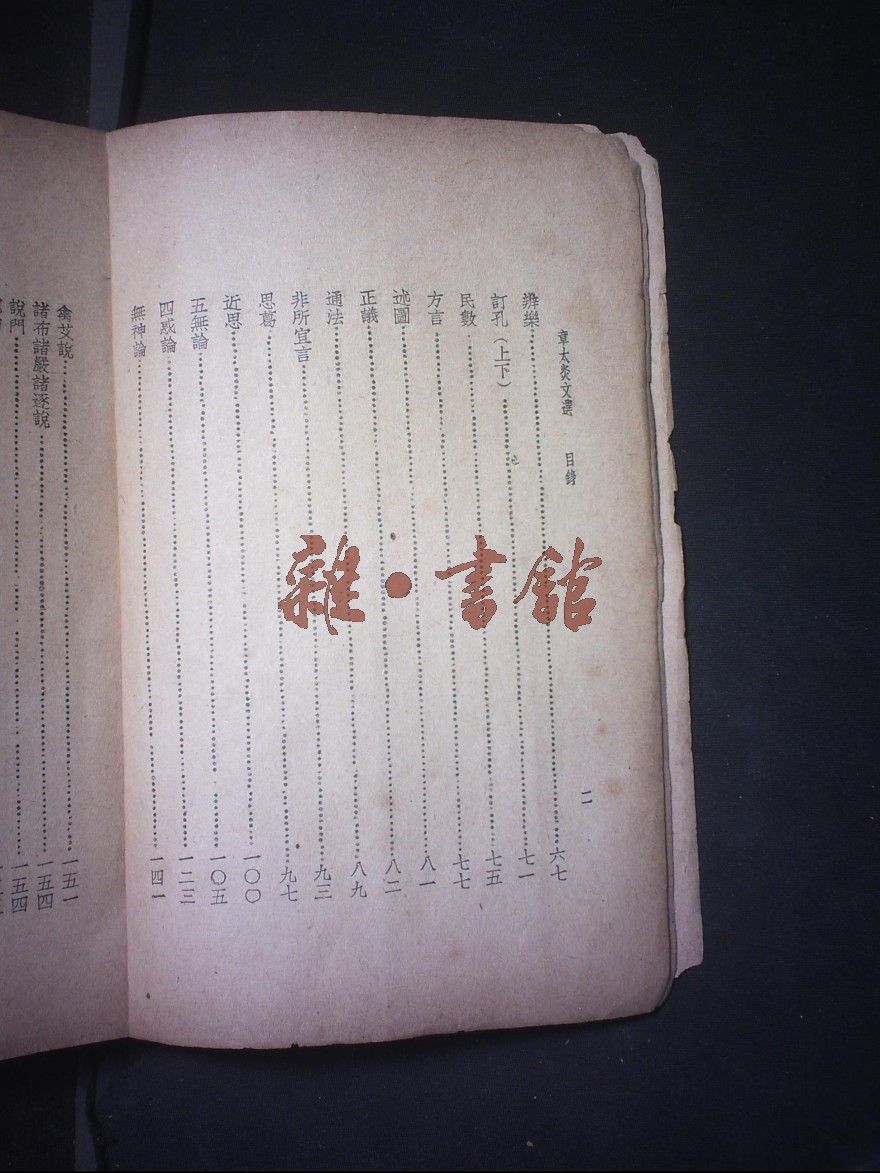 章太炎文選 目錄 二
辨樂 六七
訂孔（上下） 七一
民數 七五
方言 七七
述圖 八一
正議 八二
通法 八九
非所宜言 九三
思葛 九七
近思 一〇〇
五無論 一〇五
四惑論 一二三
無神論 一四一
禽艾說 一五一
諸布諸嚴諸逐說 一五四
說門 一五四
雜·書館